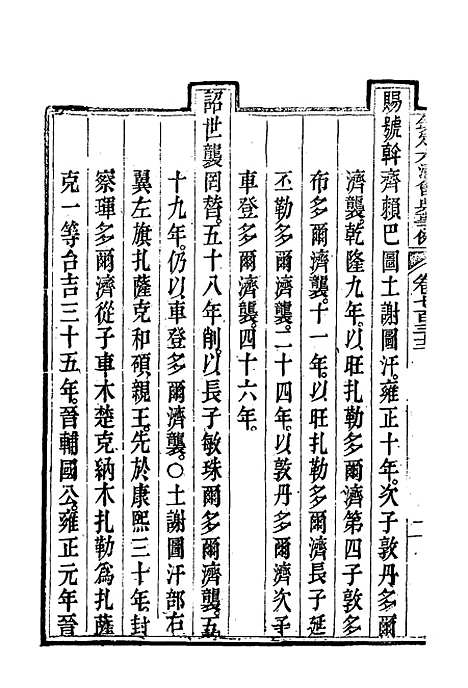 欽定大清會典事例 卷七百三十三
賜號幹濟賴巴圖土謝圖汗。雍正十年。次子敦丹多爾
濟襲。乾隆九年。以旺扎勒多爾濟第四子敦多
布多爾濟襲。十一年。以旺扎勒多爾濟長子延
丕勒多爾濟襲。二十四年。以敦丹多爾濟次子
車登多爾濟襲。四十六年。
詔世襲罔替。五十八年削。以長子敏珠爾多爾濟襲。五
十九年。仍以車登多爾濟襲。○土謝圖汗部右
翼左旗扎薩克和碩親王。先於康熙三十年。封
察琿多爾濟從子車木楚克納木扎勒爲扎薩
克一等台吉。三十五年。晉輔國公。雍正元年晉